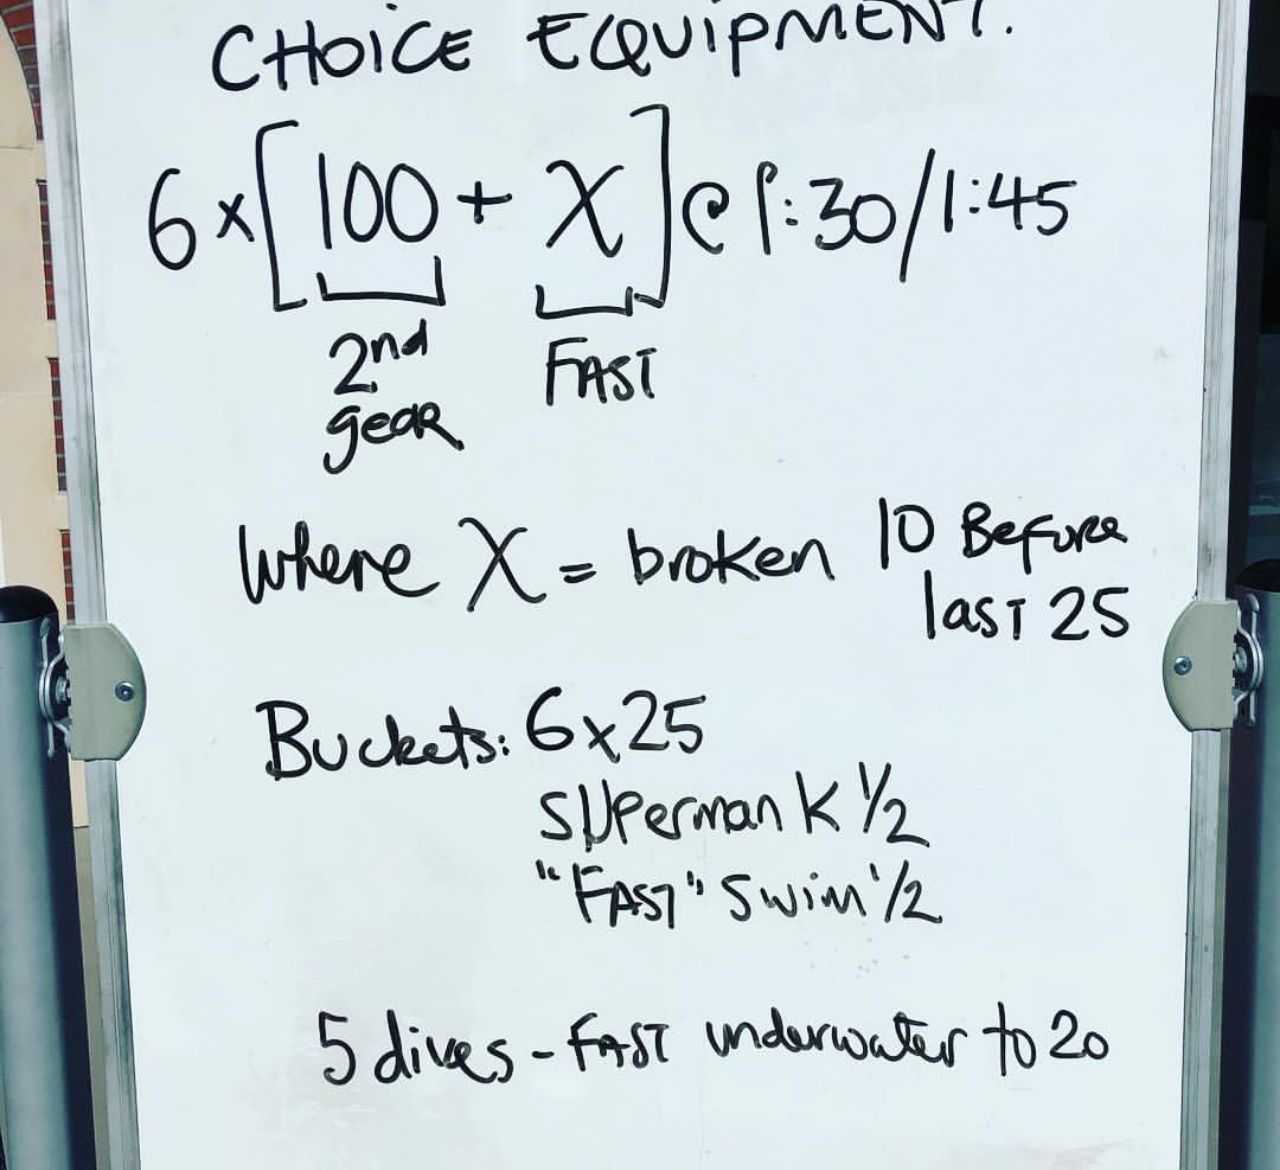 CHOICE EQUIPMENT.
6x[100 + X]@ 1:30/1:45
2nd gear FAST
Where X = broken 10 Before
last 25
Buckets: 6x25
SUPerman K 1/2
"FAST" Swim 1/2
5 dives - FAST underwater to 20